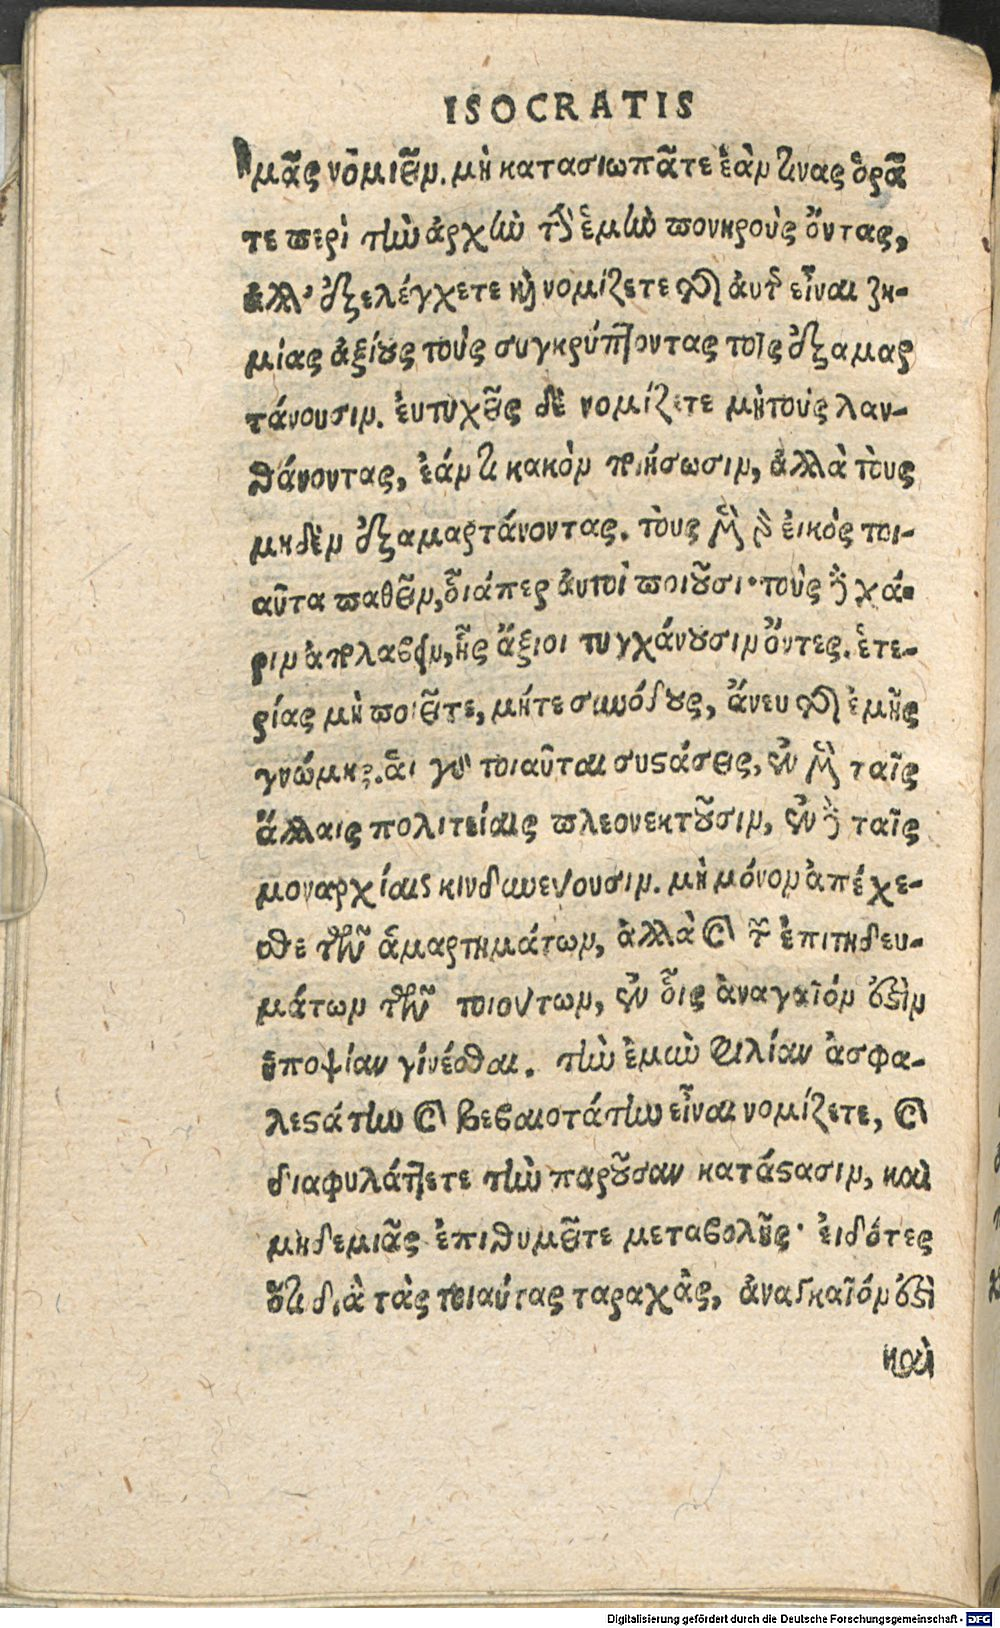 ISOCRATIS
μᾶς νόμιζειν. μὴ κατασιωπᾶτε ἐάν τινας ὁρᾶ
τε περὶ τὴν ἀρχὴν τὴν ἐμὴν πονηροὺς ὄντας,
ἀλλ' ἐξελέγχετε καὶ νομίζετε τῆς αὐτῆς εἶναι ζη-
μίας ἀξίους τοὺς συγκρύπτοντας τοῖς ἐξαμαρ
τάνουσιν. ἐυτυχεῖς δὲ νομίζετε μὴ τοὺς λαν-
θάνοντας, ἐάν τι κακὸν ποιήσωσιν, ἀλλὰ τοὺς
μηδὲν ἐξαμαρτάνοντας. τοὺς μὲν γὰρ ἐικὸς τοι-
αῦτα παθεῖν, οἷάπερ ἀυτοὶ ποιοῦσι· τοὺς δὲ χά-
ριν ἀπολαβεῖν, ἧς ἄξιοι τυγχάνουσιν ὄντες. ἑτε-
ρίας μὴ ποιεῖτε, μήτε συνόδους, ἄνευ τῆς ἐμῆς
γνώμης. ἁι γὰρ τοιαῦται συστάσεις, ἐν μὲν ταῖς
ἄλλαις πολιτείαις πλεονεκτοῦσιν, ἐν δὲ ταῖς
μοναρχίαις κινδυνεύουσιν. μὴ μόνον ἀπέχε-
σθε τῶν ἁμαρτημάτων, ἀλλὰ καὶ τῶν ἐπιτηδευ-
μάτων τῶν τοιούτων, ἐν οἷς ἀναγαῖόν ἐστὶν
ὑποψίαν γίνεσθαι. τὴν ἐμὴν φιλίαν ἀσφα-
λεστάτην καὶ βεβαιοτάτην εἶναι νομίζετε, καὶ
διαφυλάττετε τὴν παροῦσαν κατάστασιν, καὶ
μηδεμιᾶς ἐπιθυμεῖτε μεταβολῆς· ἐιδότες
ὅτι διὰ τὰς τοιαύτας ταραχὰς, ἀναγκαῖόν ἐστὶ
καὶ
Digitalisierung gefördert durch die Deutsche Forschungsgemeinschaft - DFG